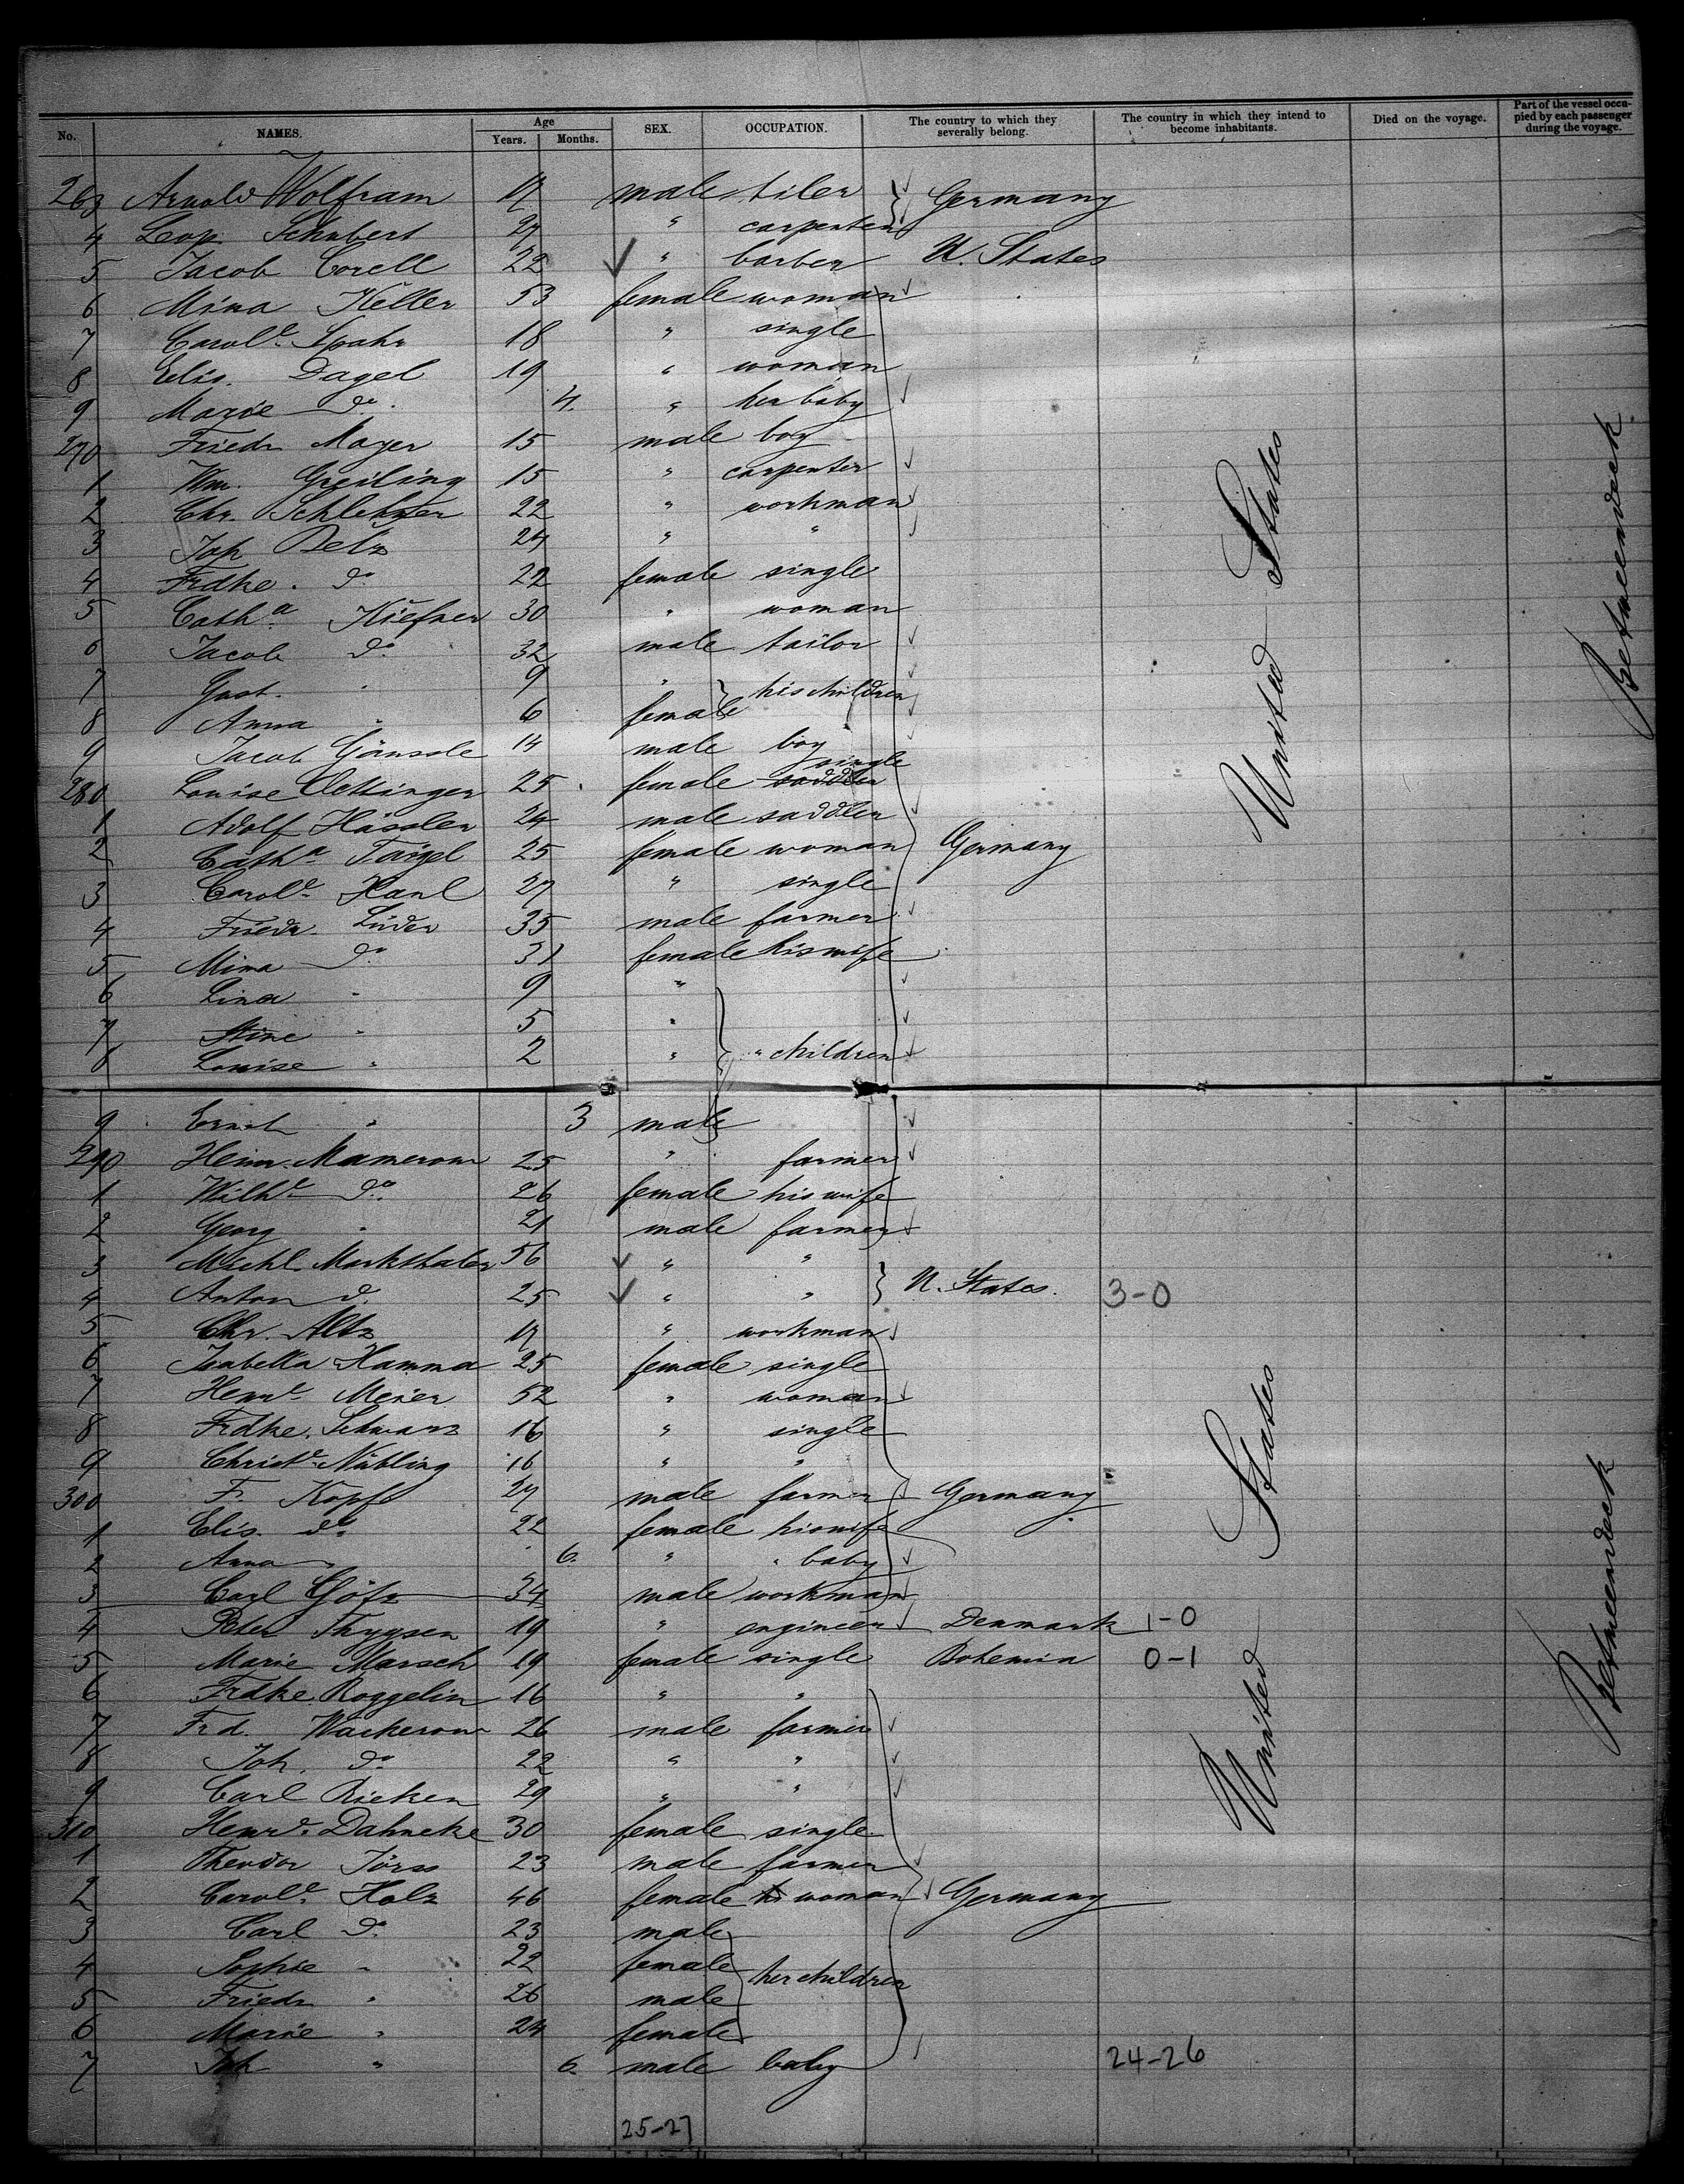 No. NAMES. Age Years. Months. SEX. OCCUPATION. The country to which they severally belong. The country in which they intend to become inhabitants. Died on the voyage. Part of the vessel occupied by each passenger during the voyage.
263 Arnold Wolfram 17 male tiler Germany
4 Leop. Schubert 27 " carpenter
5 Jacob Corell 22 " barber U. States
6 Mina Keller 53 female woman
7 Carol.e Spahr 18 " single
8 Elis. Dagel 19 " woman
9 Marie do. 4. " her baby
270 Friedr Mayer 15 male boy
1 Wm. Greiling 15 " carpenter
2 Chr. 22 " workman
3 Joh Belz 24 " "
4 Frdke. do 22 female single
5 Cath.a Kiefner 30 " woman
6 Jacob do. 32 male tailor
7 Gust. " 9 " his children
8 Anna " 6 female
9 Jacob Gänssle 14 male boy
280 Louise Oettinger 25 female saddler single
1 Adolf Hässler 24 male saddler
2 Cath.a Taigel 25 female woman Germany
3 Carol.e Hanl 27 " single
4 Friedr. Lüder 35 male farmer
5 Mina do 31 female his wife
6 Lina " 9 "
7 Stine " 5 "
8 Louise " 2 " " children
United States
Betweendeck
9 Ernst " 3 male
290 Heinr. Mamerow 25 " farmer
1 Wilh.e do. 26 female his wife
2 Georg " 21 male farmer
3 Michl. Markthaler 56 " "
4 Anton d. 25 " " U. States. 3-0
5 Chr. Altz 17 " workman
6 Isabella Hamma 25 female single
7 Henr.e Meier 52 " woman
8 Frdke. Schwarz 16 " single
9 Christ.e Nübling 16 " "
300 F. Kopf 27 male farmer Germany
1 Elis. do. 22 female his wife
2 Anna " 6. " " baby
3 Carl Götz 34 male workman
4 Peter Thygsen 19 " engineer Denmark 1-0
5 Marie Marsch 19 female single Bohemia 0-1
6 Frdke. Roggelin 16 " "
7 Frd. Wackerow 26 male farmer
8 Joh. do 22 " "
9 Carl Rieken 29 " "
310 Henr.e Dahncke 30 female single
1 Theodor Jörss 23 male farmer
2 Carol.e Holz 46 female woman Germany
3 Carl do. 23 male
4 Sophie " 22 female her children
5 Friedr " 26 male
6 Marie " 24 female
7 Joh " 6. male baby 24-26
25-27
United States
Betweendeck